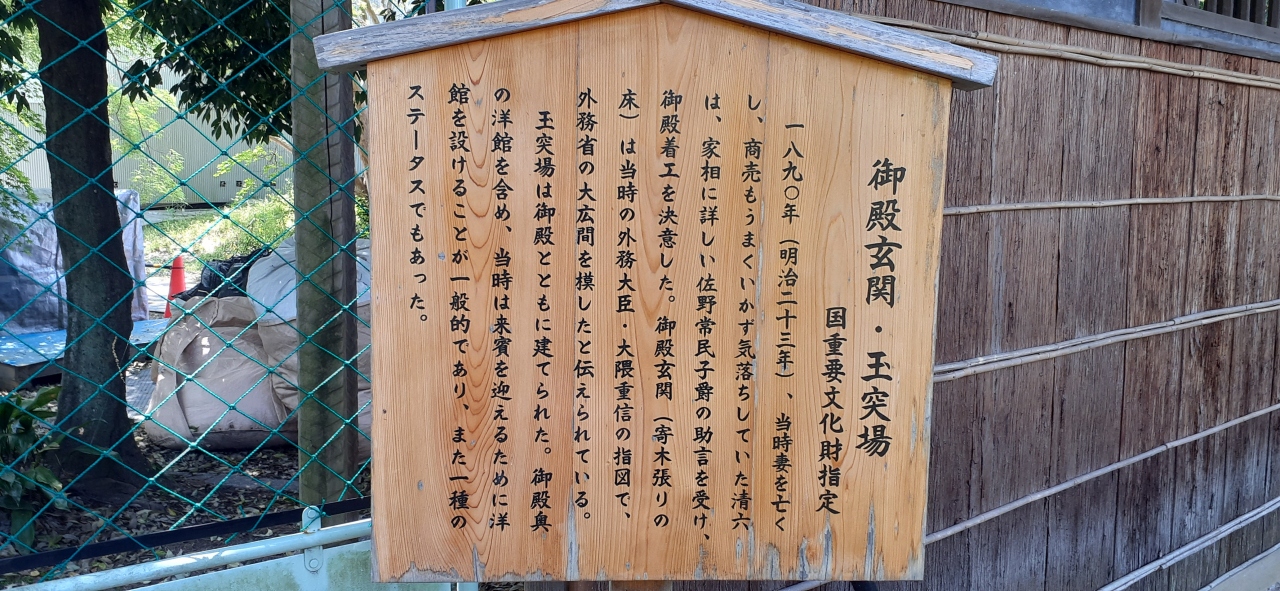 御殿玄関・玉突場
国重要文化財指定
一八九〇年（明治二十三年）、当時妻を亡く
し、商売もうまくいかず気落ちしていた清六
は、家相に詳しい佐野常民子爵の助言を受け、
御殿着工を決意した。御殿玄関（寄木張りの
床）は当時の外務大臣・大隈重信の指図で、
外務省の大広間を摸したと伝えられている。
玉突場は御殿とともに建てられた。御殿奥
の洋館を含め、当時は来賓を迎えるために洋
館を設けることが一般的であり、また一種の
ステータスでもあった。